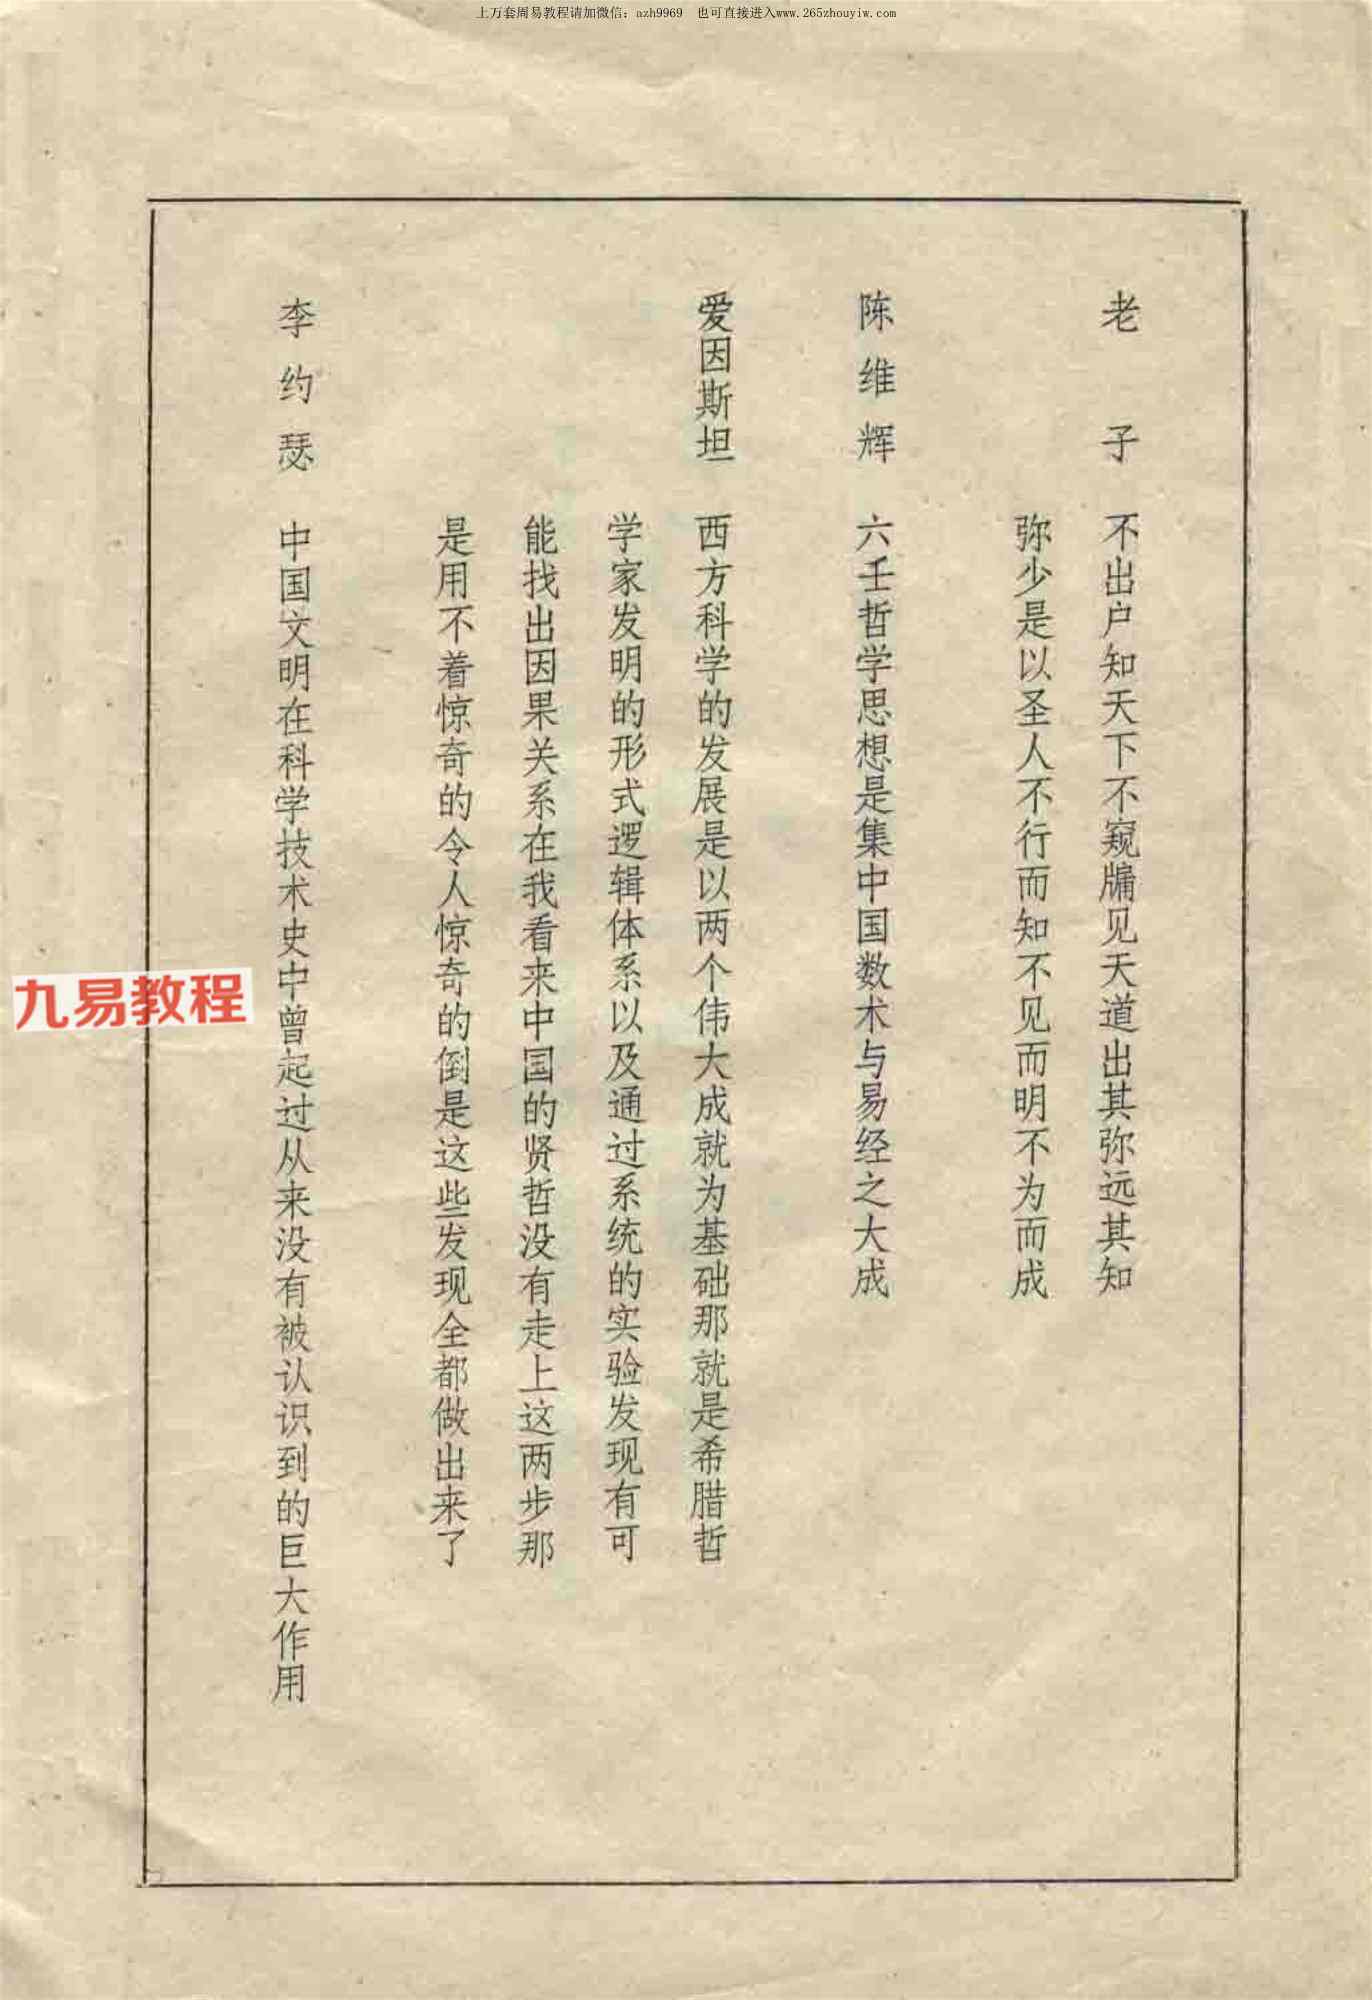 上万套周易教程请加微信：azh9969 也可直接进入www.265zhouyiw.com
老子 不出户知天下不窥牖见天道出其弥远其知
弥少是以圣人不行而知不见而明不为而成
陈维辉 六壬哲学思想是集中国数术与易经之大成
爱因斯坦 西方科学的发展是以两个伟大成就为基础那就是希腊哲
学家发明的形式逻辑体系以及通过系统的实验发现有可
能找出因果关系在我看来中国的贤哲没有走上这两步那
是用不着惊奇的令人惊奇的倒是这些发现全都做出来了
李约瑟 中国文明在科学技术史中曾起过从来没有被认识到的巨大作用
九易教程